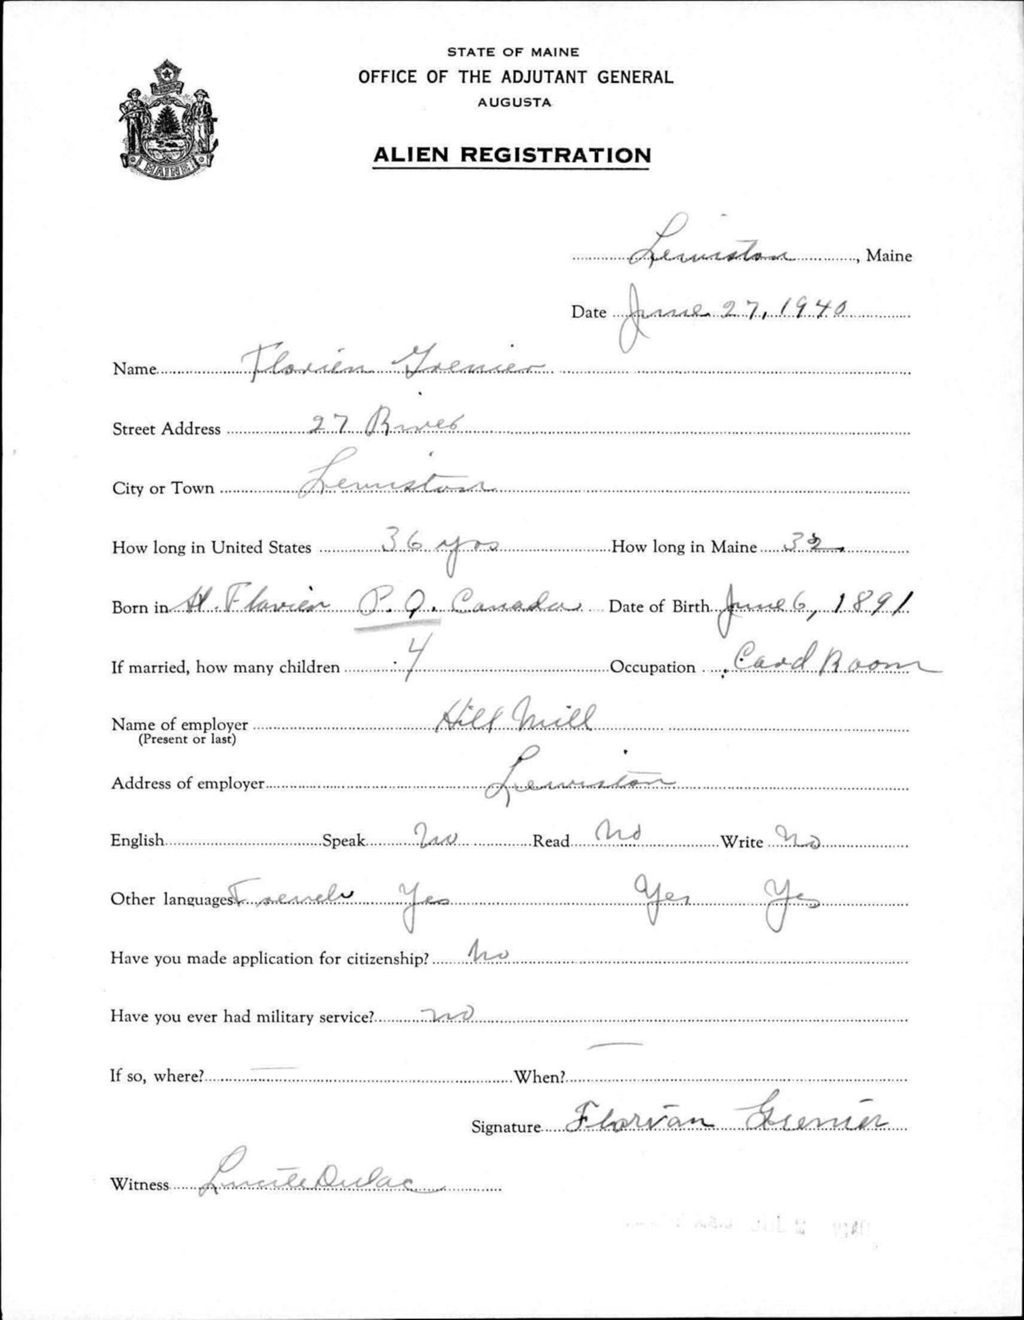 STATE OF MAINE
OFFICE OF THE ADJUTANT GENERAL
AUGUSTA
ALIEN REGISTRATION
MAINE
Lewiston, Maine
Date June 27, 1940
Name Florien Grenier
Street Address 27 River
City or Town Lewiston
How long in United States 36 yrs How long in Maine 32
Born in St. Flavien P. Q. Canada Date of Birth June 6, 1891
If married, how many children 4 Occupation Card Room
Name of employer Hill Mill
(Present or last)
Address of employer Lewiston
English Speak No Read No Write No
Other languages French Yes Yes Yes
Have you made application for citizenship? No
Have you ever had military service? no
If so, where? — When? —
Signature Florian Grenier
Witness Lucille Dulac